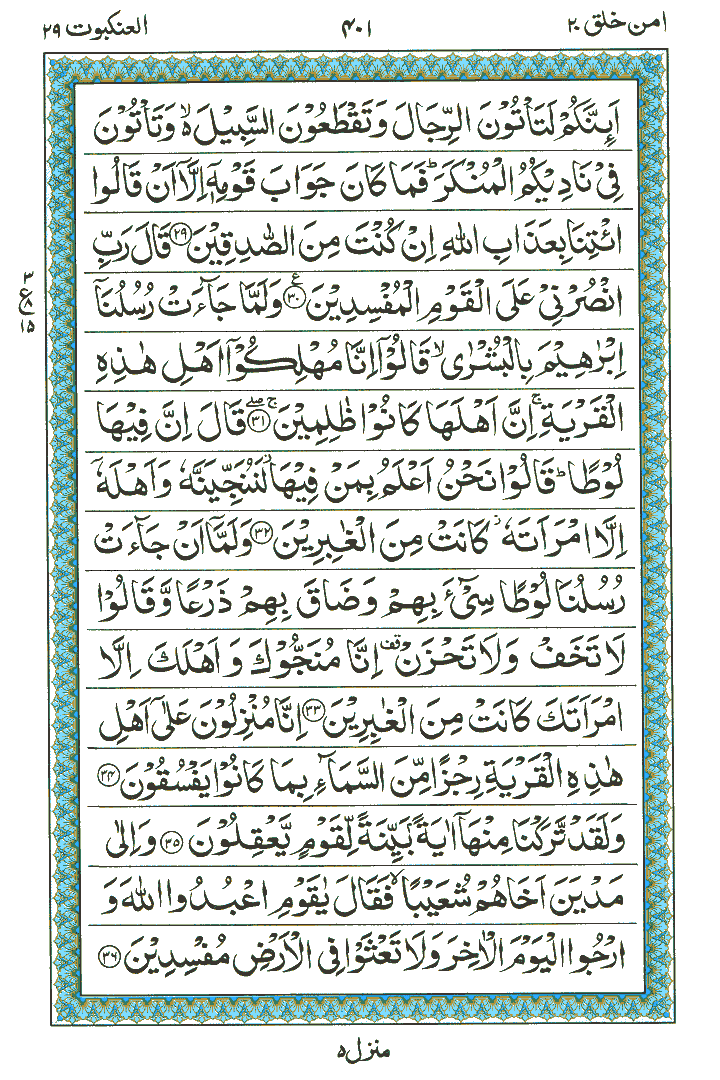 امن خلق ۲۰
۴۰۱
العنکبوت ۲۹
اَئِنَّكُمْ لَتَاْتُوْنَ الرِّجَالَ وَتَقْطَعُوْنَ السَّبِيْلَ ۙ۬ وَتَاْتُوْنَ
فِيْ نَادِيْكُمُ الْمُنْكَرَ ؕ فَمَا كَانَ جَوَابَ قَوْمِهٖۤ اِلَّاۤ اَنْ قَالُوا
ائْتِنَا بِعَذَابِ اللّٰهِ اِنْ كُنْتَ مِنَ الصّٰدِقِيْنَ ﴿۲۹﴾ قَالَ رَبِّ
انْصُرْنِيْ عَلَى الْقَوْمِ الْمُفْسِدِيْنَ ﴿۳۰﴾ ع وَلَمَّا جَآءَتْ رُسُلُنَاۤ
۳
ع
۸
۱۵
اِبْرٰهِيْمَ بِالْبُشْرٰى ۙ قَالُوْۤا اِنَّا مُهْلِكُوْۤا اَهْلِ هٰذِهِ
الْقَرْيَةِ ۚ اِنَّ اَهْلَهَا كَانُوْا ظٰلِمِيْنَ ﴿۳۱﴾ ۚۖ قَالَ اِنَّ فِيْهَا
لُوْطًا ؕ قَالُوْا نَحْنُ اَعْلَمُ بِمَنْ فِيْهَا ؗ لَنُنَجِّيَنَّهٗ وَاَهْلَهٗۤ
اِلَّا امْرَاَتَهٗ ؗ كَانَتْ مِنَ الْغٰبِرِيْنَ ﴿۳۲﴾ وَلَمَّاۤ اَنْ جَآءَتْ
رُسُلُنَا لُوْطًا سِيْٓءَ بِهِمْ وَضَاقَ بِهِمْ ذَرْعًا وَّقَالُوْا
لَا تَخَفْ وَلَا تَحْزَنْ قف اِنَّا مُنَجُّوْكَ وَاَهْلَكَ اِلَّا
امْرَاَتَكَ كَانَتْ مِنَ الْغٰبِرِيْنَ ﴿۳۳﴾ اِنَّا مُنْزِلُوْنَ عَلٰۤى اَهْلِ
هٰذِهِ الْقَرْيَةِ رِجْزًا مِّنَ السَّمَآءِ بِمَا كَانُوْا يَفْسُقُوْنَ ﴿۳۴﴾
وَلَقَدْ تَّرَكْنَا مِنْهَاۤ اٰيَةًۢ بَيِّنَةً لِّقَوْمٍ يَّعْقِلُوْنَ ﴿۳۵﴾ وَاِلٰى
مَدْيَنَ اَخَاهُمْ شُعَيْبًا ۙ فَقَالَ يٰقَوْمِ اعْبُدُوا اللّٰهَ وَ
ارْجُوا الْيَوْمَ الْاٰخِرَ وَلَا تَعْثَوْا فِي الْاَرْضِ مُفْسِدِيْنَ ﴿۳۶﴾
منزل ۵